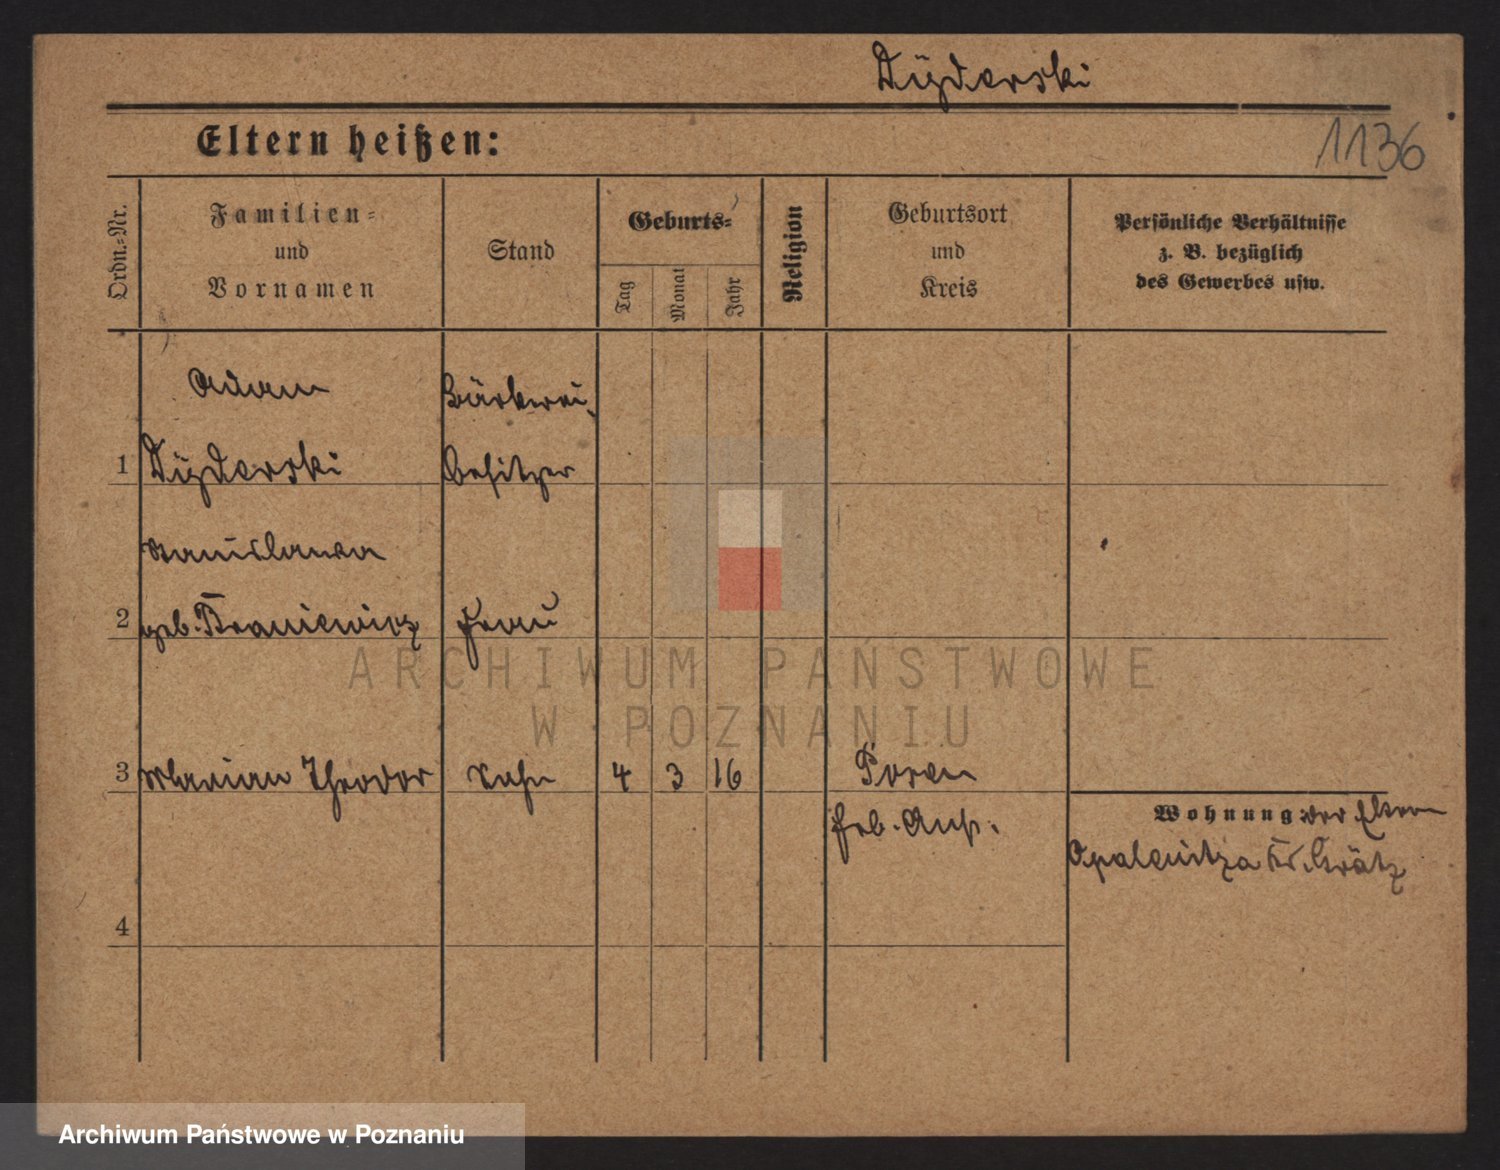 Dyzderski
Eltern heißen:
1136
Ordn.-Nr.
Familien-
und
Vornamen
Stand
Geburts-
Tag
Monat
Jahr
Religion
Geburtsort
und
Kreis
Persönliche Verhältnisse
z. B. bezüglich
des Gewerbes usw.
Adam
Bäckerei
1
Dyzderski
Besitzer
Stanislawa
2
geb.
Frau
ARCHIWUM PAŃSTWOWE
W POZNANIU
3
Marian Theodor
Sohn
4
3
16
Posen
Wohnung der Eltern
Opalenitza Kr. Grätz
4
Archiwum Państwowe w Poznaniu